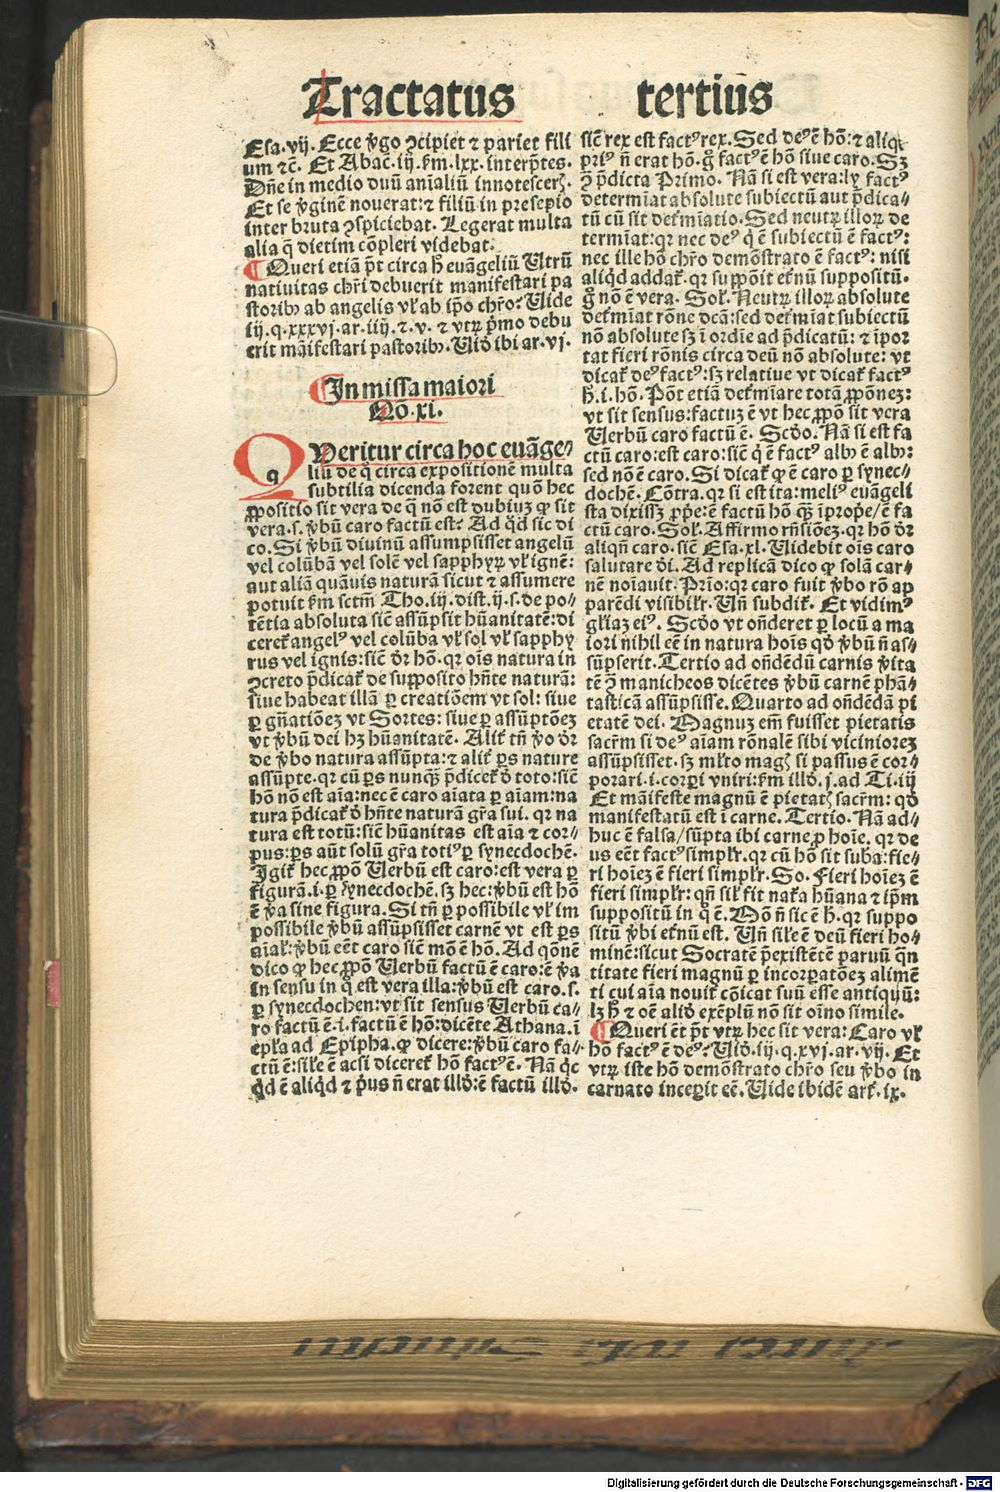 Tractatus tertiūs
Esa.vij. Ecce ṽgo ꝯcipiet ⁊ pariet fili
um ⁊c̄. Et Abac.iij. ẜm.lxx.interp̄tes.
Dn̄e in medio duū aīaliū innotescer̄.
Et se ṽginē nouerat:⁊ filiū in presepio
inter bruta ꝯspiciebat. Legerat multa
alia q̄ dietim cōpleri videbat.
¶Queri etiā p̄t circa h̄ euāgeliū Utrū
natiuitas chr̄i debuerit manifestari pa
storibꝰ ab angelis vl̄ ab ip̄o chr̄o: Uide
iij.q.xxxvj.ar.iiij.⁊.v.⁊ vtꝝ p̄mo debu
erit māifestari pastoribꝰ. Uiđ ibi ar.vj.
¶In missa maiori
No̅.xi.
QUeritur circa hoc euāge⸗
liū de q̄ circa expositionē multa
subtilia dicenda forent quō hec
ꝓpositio sit vera de q̄ nō est dubiuꝫ ꝙ sit
vera.s. ṽbū caro factū est: Ad qđ sic di
co. Si ṽbū diuinū assumpsisset angelū
vel colūbā vel solē vel sapphyꝝ vl̄ ignē:
aut aliā quāuis naturā sicut ⁊ assumere
potuit ẜm sctm̄ Tho.iij.dist.ij.s.de po⸗
tētia absoluta sic̄ assūpsit hūanitatē:di
ceret̄ angelꝰ vel colūba vl̄ sol vl̄ sapphy
rus vel ignis:sic̄ dr̄ hō.qr oīs natura in
ꝯcreto p̄dicat̄ de supposito hn̄te naturā:
siue habeat illā ꝑ creatiōem vt sol: siue
ꝑ gn̄atiōeꝫ vt Sortes: siue ꝑ assūptōeꝫ
vt ṽbū dei hꝫ hūanitatē. Alit̄ tn̄ ṽo dr̄
de ṽbo natura assūpta:⁊ alit̄ ꝑs nature
assūpte.qr cū ꝑs nunqꝫ p̄dicet̄ đ toto:sic̄
hō nō est aīa:nec ē caro aīata ꝑ aīam:na
tura p̄dicat̄ đ hn̄te naturā gr̄a sui. qr na
tura est totū:sic̄ hūanitas est aīa ⁊ cor⸗
pus:ꝑs aūt solū gr̄a totiꝰ ꝑ synecdochē.
Igit̄ hec ꝓpō Uerbū est caro:est vera ꝑ
figurā.i.ꝑ synecdochē.sꝫ hec:ṽbū est hō
ē ṽa sine figura. Si tn̄ ꝑ possibile vl̄ im
possibile ṽbū assūpsisset carnē vt est ꝑs
aīal̄:ṽbū eēt caro sic̄ mō ē hō. Ad qōnē
dico ꝙ hec ꝓpō Uerbū factū ē caro:ē ṽa
in sensu in q̄ est vera illa:ṽbū est caro.s.
ꝑ synecdochen:vt sit sensus Uerbū ca⸗
ro factū ē.i.factū ē hō:dicēte Athana.ī
epl̄a ad Epipha.ꝙ dicere:ṽbū caro fa⸗
ctū ē:sil̄e ē acsi diceret̄ hō factꝰ ē. Nā qc̄
qđ ē aliqđ ⁊ p̄us n̄ erat illđ:ē factū illđ.
sic̄ rex est factꝰ rex. Sed deꝰ ē hō:⁊ aliqn̄
priꝰ n̄ erat hō.g̊ factꝰ ē hō siue caro. Sꝫ
ꝯ̄ p̄dicta Primo. Nā si est vera:ly factꝰ
determīat absolute subiectū aut p̄dica⸗
tū cū sit det̄mīatio. Sed neutꝝ illoꝝ de
termīat:qr nec deꝰ q̄ ē subiectū ē factꝰ:
nec ille hō chr̄o demōstrato ē factꝰ: nisi
aliqđ addat̄.qr suppōit et̄nū suppositū.
g̊ nō ē vera. Sol̄. Neutꝝ illoꝝ absolute
det̄mīat rōne dc̄ā:sed det̄mīat subiectū
nō absolute sꝫ ī ordīe ad p̄dicatū: ⁊ īpor
tat fieri rōnis circa deū nō absolute: vt
dicat̄ deꝰ factꝰ:sꝫ relatiue vt dicat̄ factꝰ
h̄.i.hō. Pōt etiā det̄mīare totā ꝓpōneꝫ:
vt sit sensus:factuꝫ ē vt hec ꝓpō sit vera
Uerbū caro factū ē. Scđo. Nā si est fa
ctū caro:est caro:sic̄ q̄ ē factꝰ albꝰ ē albꝰ:
sed nō ē caro. Si dicat̄ ꝙ ē caro ꝑ synec⸗
dochē. Cōtra.qr si est ita:meliꝰ euāgeli
sta dixissꝫ ꝓpe:ē factū hō qꝫ īꝓpe/ē fa
ctū caro. Sol̄. Affirmo rn̄siōeꝫ.qr hō dr̄
aliqn̄ caro.sic̄ Esa.xl. Uidebit oīs caro
salutare đi. Ad replicā dico ꝙ solā car⸗
nē noīauit. Prīo:qr caro fuit ṽbo rō ap
parēdi visibilr̄. Un̄ subdit̄. Et vidimꝰ
gl̄iaꝫ eiꝰ. Scđo vt on̄deret ꝑ locū a ma
iori nihil eē in natura hoīs qđ ṽbū n̄ as⸗
sūpserit. Tertio ad on̄dēdū carnis ṽita
tē ꝯ̄ manicheos dicētes ṽbū carnē phā⸗
tasticā assūpsisse. Quarto ad on̄dēdā pi
etatē dei. Magnuꝫ em̄ fuisset pietatis
sacr̄m si deꝰ aīam rōnalē sibi vicinioreꝫ
assūpsisset.sꝫ ml̄to magꝭ si passus ē cor⸗
porari.i.corꝑi vniri:ẜm illđ.j.ad Ti.iij
Et māifeste magnū ē pietatꝭ sacr̄m: qđ
manifestatū est ī carne. Tertio. Nā ad⸗
huc ē falsa/sūpta ibi carne ꝓ hoīe. qr de
us eēt factꝰ simplr̄.qr cū hō sit suba:fie⸗
ri hoīeꝫ ē fieri simplr̄. So. Fieri hoīeꝫ ē
fieri simplr̄: qn̄ sil̄ fit nat̄a hūana ⁊ ip̄m
suppositū in q̄ ē. Mō n̄ sic ē h̄.qr suppo
sitū ṽbi et̄nū est. Un̄ sil̄e ē deū fieri ho⸗
minē:sicut Socratē p̄existētē paruū q̄n
titate fieri magnū ꝑ incorꝑatōeꝫ alimē
ti cui aīa nouit cōicat suū esse antiquū:
lꝫ h̄ ⁊ oē aliđ exēplū nō sit oīno simile.
¶Queri ēt p̄t vtꝝ hec sit vera: Caro vl̄
hō factꝰ ē deꝰ: Uiđ.iij.q.xvj.ar.vij. Et
vtꝝ iste hō demōstrato chr̄o seu ṽbo in
carnato incepit eē. Uide ibidē art̄.ix.
Digitalisierung gefördert durch die Deutsche Forschungsgemeinschaft - DFG